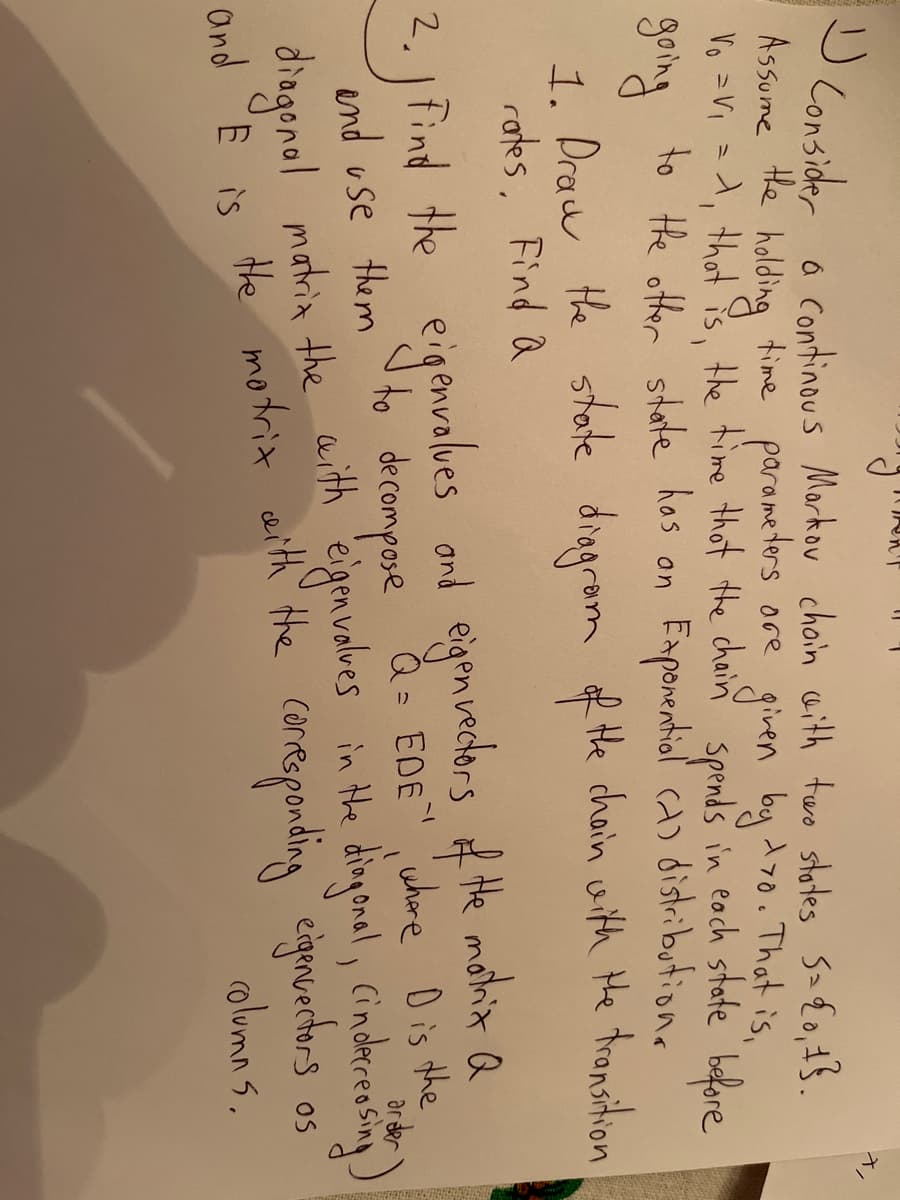 1) Consider a continous Markov chain with two states S={0,1}.
Assume the holding time parameters are given by λ>0. That is,
V₀ = V₁ = λ, that is, the time that the chain spends in each state before
going to the other state has an Exponential (λ) distribution.
1. Draw the state diagram of the chain with the transition
rates. Find Q
2. Find the eigenvalues and eigenvectors of the matrix Q
and use them to decompose Q = EDE⁻¹, where D is the
diagonal matrix the with eigenvalues in the diagonal, (in decreasing order)
and E is the matrix with the corresponding eigenvectors as
columns.